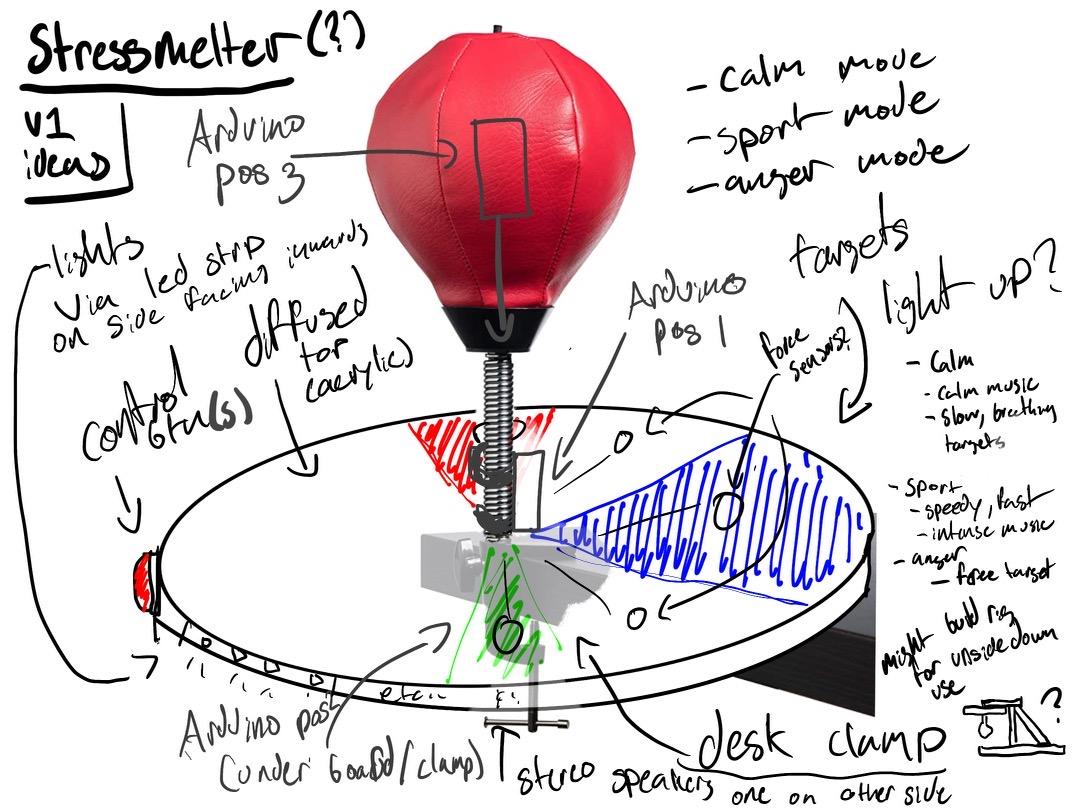 Stressmelter (?)
v1
ideas
Arduino
pos 3
- calm mode
- sport mode
- anger mode
- lights
via led strip
on side facing inwards
diffused
top
(acrylic)
control
btn(s)
Arduino
pos 1
force
sensors?
targets
light up?
- Calm
- Calm music
- slow, breathing
targets
- sport
- speedy, fast
- intense music
- anger
- force target
might build rig
for upside down
use
?
Arduino pos2
(under board/clamp)
stereo speakers
one on other side
desk clamp